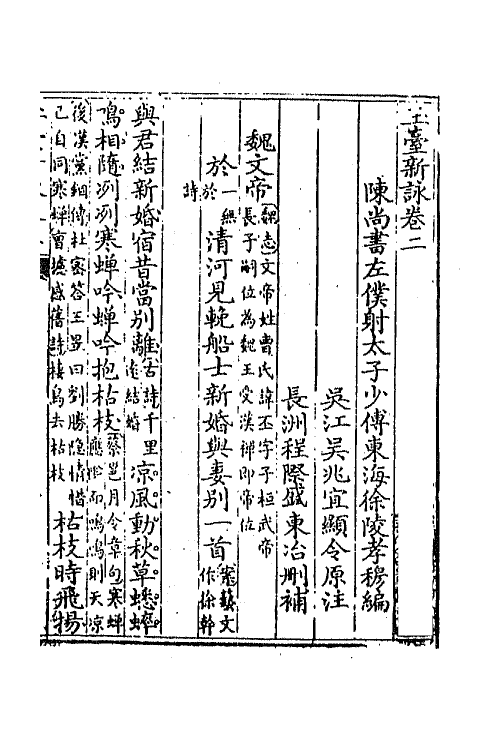 玉臺新詠卷二
陳尚書左僕射太子少傅東海徐陵孝穆編
吳江吳兆宜顯令原注
長洲程際盛東冶刪補
魏文帝 魏志文帝姓曹氏諱丕字子桓武帝
長子嗣位為魏王受漢禪即帝位
於 一無
於 清河見輓船士新婚與妻别一首 案藝文
作徐幹
詩
與君結新婚宿昔當别離 古詩千里
遠結婚 凉風動秋草蟋蟀
鳴相隨冽冽寒蟬吟蟬吟抱枯枝 蔡邕月令章句寒蟬
應陰而鳴鳴則天凉
後漢黨錮傳杜密答王昱曰劉勝隱情惜
己自同寒蟬曹攄感舊詩棲鳥去枯枝 枯枝時飛揚